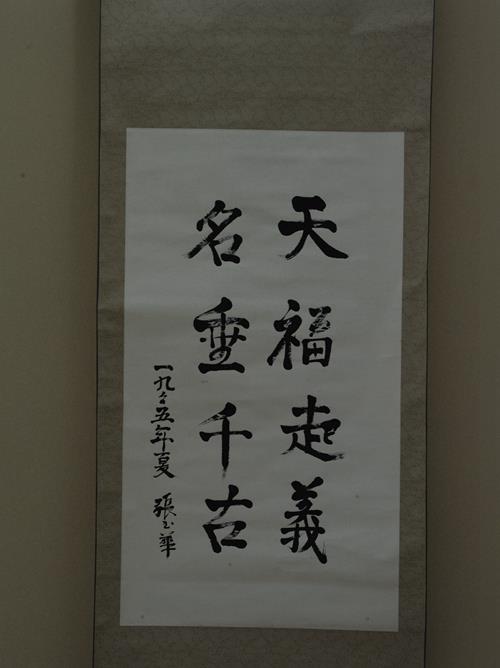 天福起義
名垂千古
一九々五年夏 張玉華